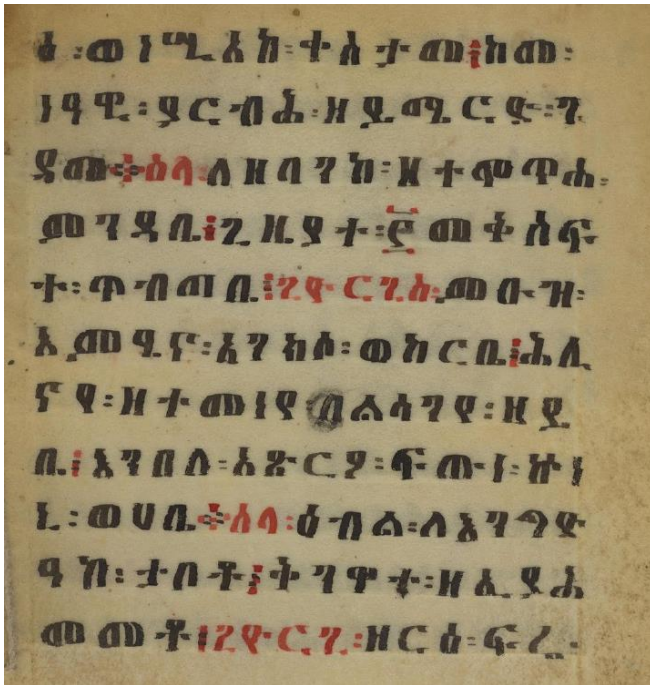 ወነሢአከ፡ ከመ፡
ነዓዊ፡ያርብሕ፡ዘይሜርድ፡ገ
ዳመ፨ሰላ፡ለዘባንከ፡ዘተሞጥሐ፡
መንዳቤ፤ጊዜያተ፡፸መቅሰፍ
ተ፡ጥብጣቤ፤ጊዮርጊስ፡መዑዝ፡
እምዒኖ፡አንኮሶ፡ወከርቤ፤ሕሊ
ናየ፡ዘተመነየ፡በልሳንየ፡ዘይ
ቤ፤እንበለ፡አጽርዖ፡ፍጡነ፡ኩነ
ኒ፡ወሀቤ፨ሰላ፡ዕብል፡ለእንግድ
ዓከ፡ታቦቶ፤ዘኢያሕ
መመቶ፤ጊዮርጊ፡ዘርዕ፡ፍሬ፡